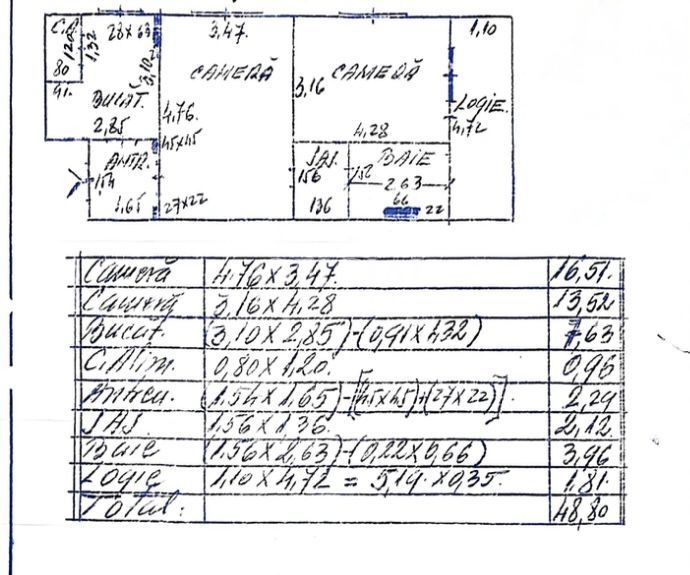 C.A. 28x63 3,47. 1,10
120 1,32 3,10
80 CAMERĂ CAMERĂ
91. 3,16
BUCĂT. 4,76. LOGIE.
2,85 4,28 4,72
45x45
ANTR. SAS. BAIE
1,54 156 152 2,63
1,65 27x22 136 66 22
Cameră 4.76 x 3,47. 16,51.
Cameră 3,16 x 4,28 13,52
Bucăt. (3,10 x 2,85)-(0,91 x 1,32) 7,63
C.Alim. 0,80 x 1,20. 0,96
Antreu. (1.54 x 1,65)-[(45x45)+(27x22)]. 2,29
SAS. 1.56 x 1,36. 2,12.
Baie (1.56 x 2,63)-(0,22 x 0,66) 3,96
Logie 1,10 x 4,72 = 5,19. x 0,35. 1,81.
Total. 48,80